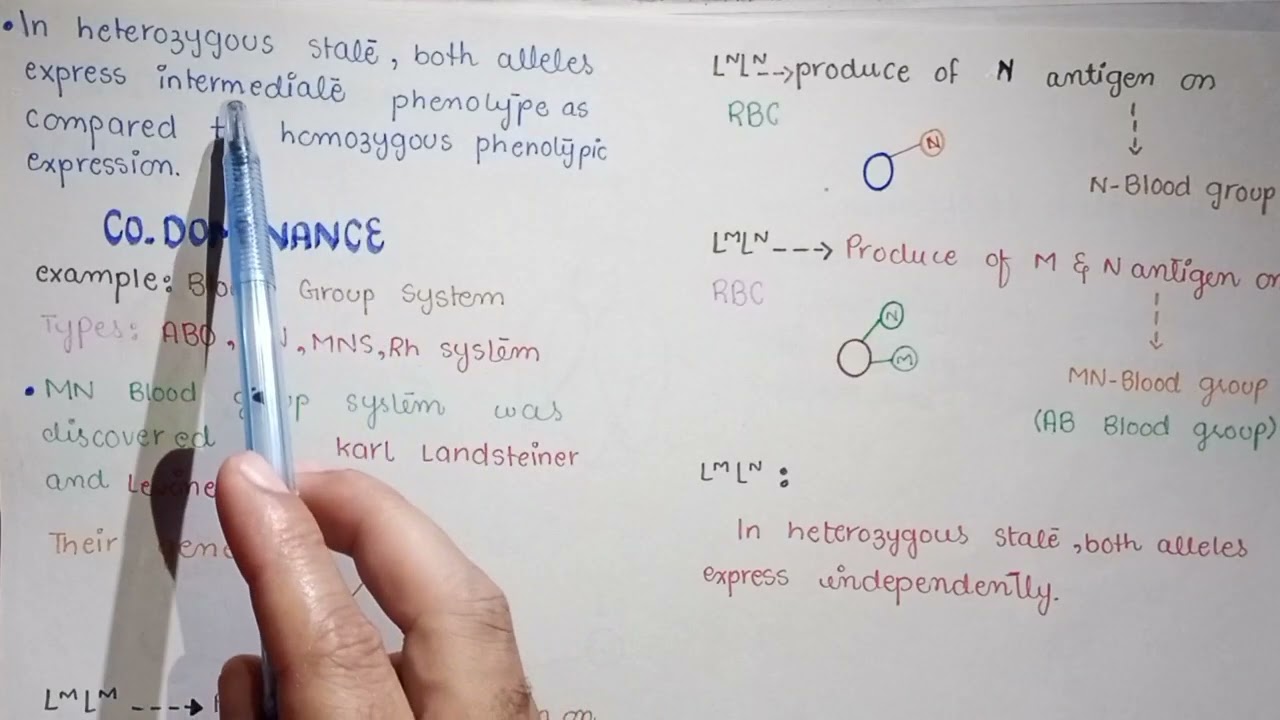 • In heterozygous state, both alleles
express intermediate phenotype as
compared homozygous phenotypic
expression.
CO. DOMINANCE
example: Group System
Types: ABO, , MNS, Rh system
• MN Blood group system was
discovered Karl Landsteiner
and Levine
Their
LᴹLᴹ ---->
LᴺLᴺ --> produce of N antigen on
RBC
N
N-Blood group
LᴹLᴺ ---> Produce of M & N antigen on
RBC
N
M
MN-Blood group
(AB Blood group)
LᴹLᴺ :
In heterozygous state, both alleles
express independently.